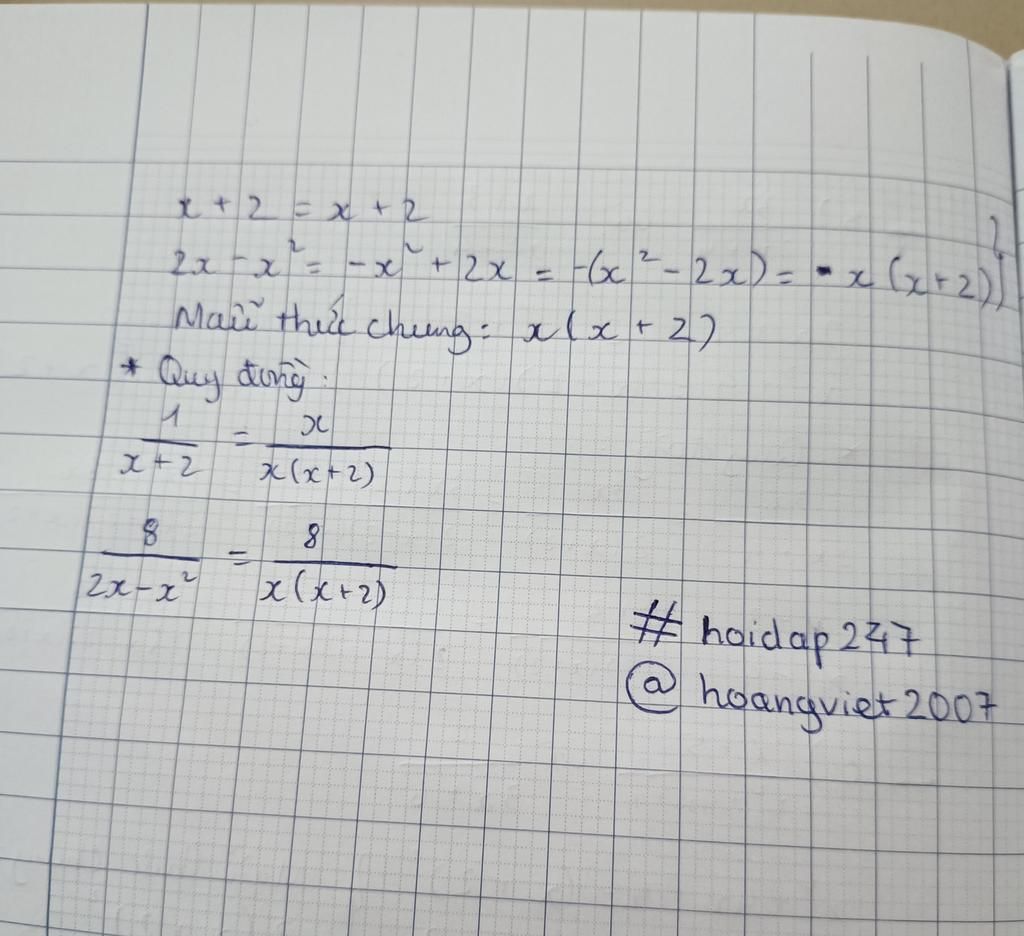 x + 2 = x + 2
2x - x² = -x² + 2x = -(x² - 2x) = - x (x + 2)
Mẫu thức chung: x(x + 2)
* Quy đồng:
1/(x+2) = x/(x(x+2))
8/(2x-x²) = 8/(x(x+2))
# hoidap247
@ hoangviet2007